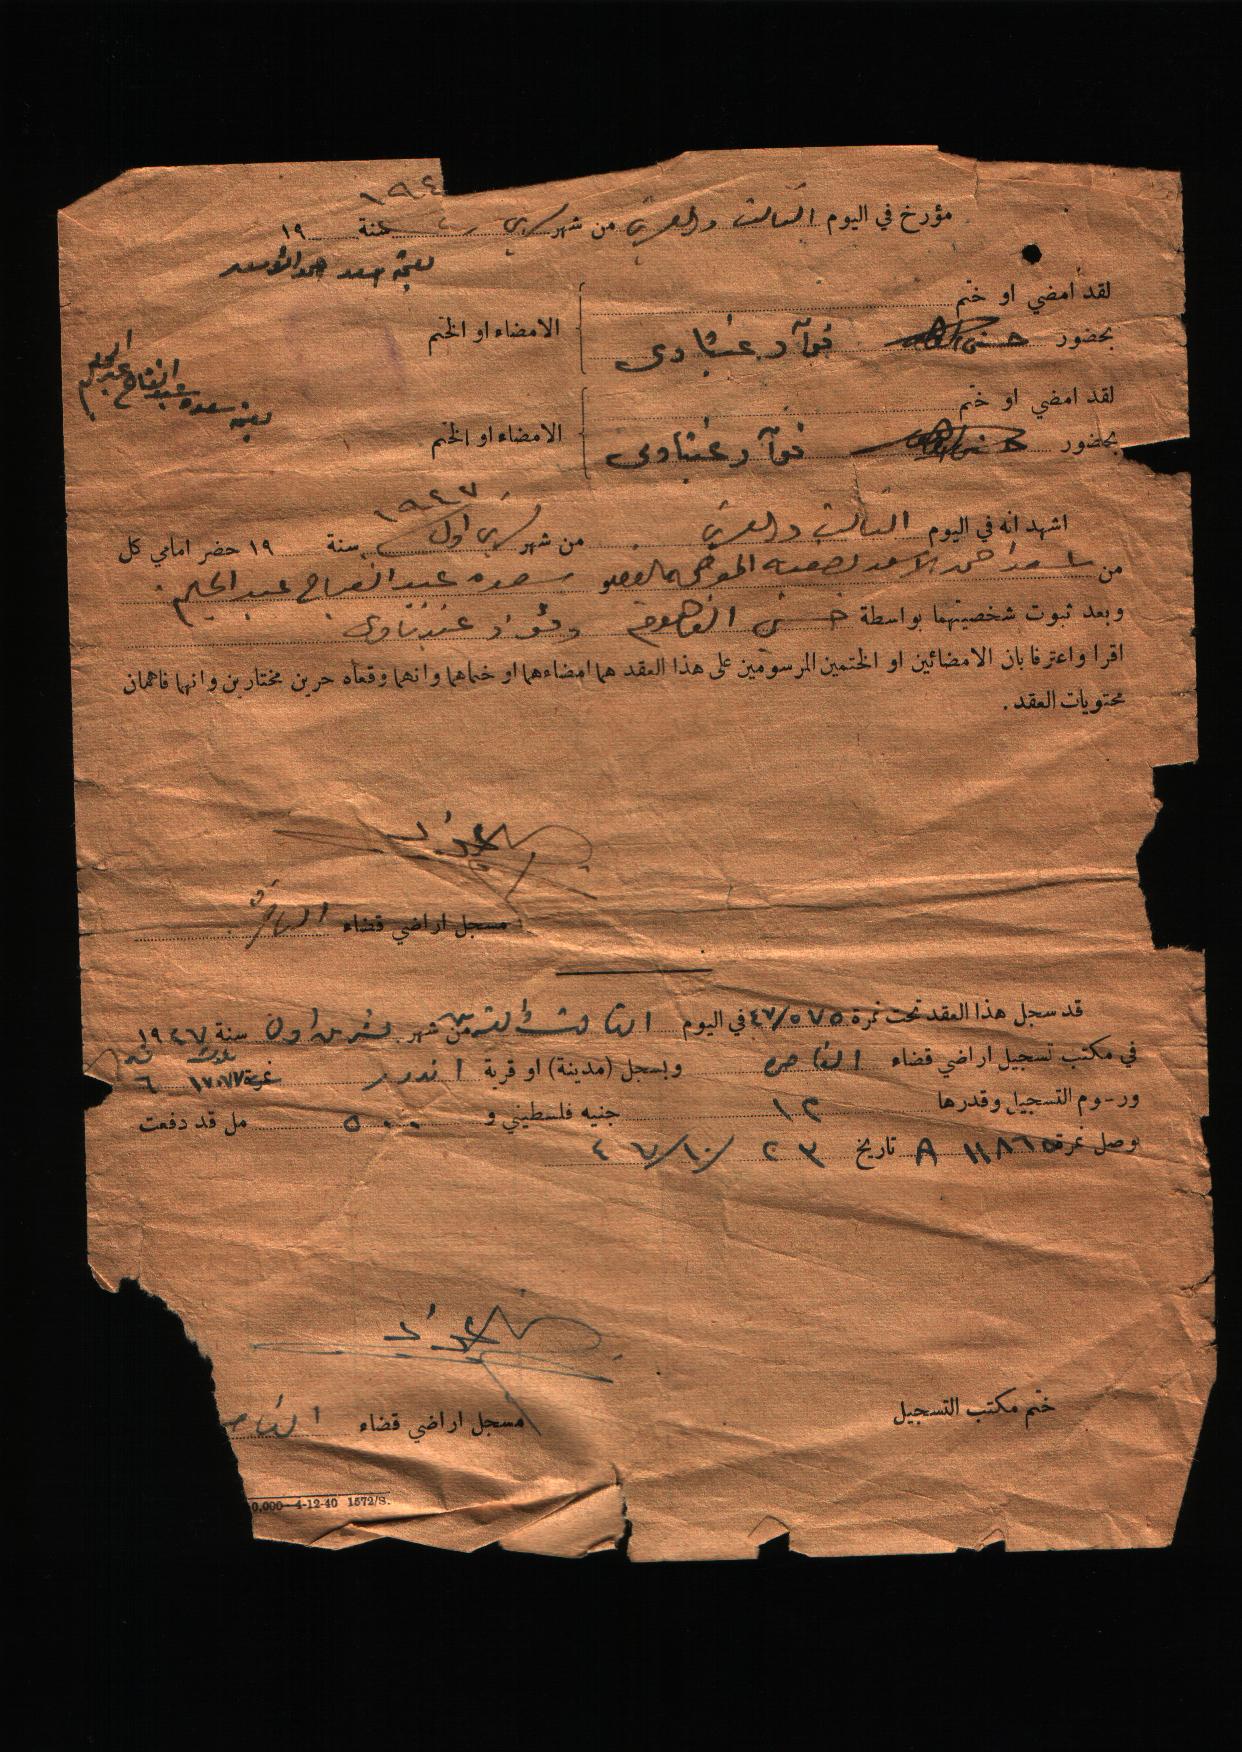 ١٩٤
مؤرخ في اليوم الثالث والعشرين من شهر تشرين سنة ١٩
بصمة اسعد احمد الاسعد
لقد امضي او ختم
الامضاء او الختم
بحضور فؤاد عنبتاوي
بصمة سعده عبد الفتاح عبد الحليم
لقد امضي او ختم
الامضاء او الختم
بحضور فؤاد عنبتاوي
١٩٤٧
اشهد انه في اليوم الثالث والعشرين من شهر تشرين اول سنة ١٩ حضر امامي كل
من اسعد احمد الاسعد سعده عبد الفتاح عبد الحليم
وبعد ثبوت شخصيتهما بواسطة حسني الفاهوم وفؤاد عنبتاوي
اقرا واعترفا بان الامضائين او الختمين المرسومين على هذا العقد هما امضاءهما او ختماهما وانهما وقعاه حرين مختارين وانهما فاهمان
محتويات العقد .
مسجل اراضي قضاء الناصرة
قد سجل هذا العقد تحت نمرة ٤٧/٥٧٥ في اليوم الثالث والعشرين من شهر تشرين اول سنة ١٩٤٧
في مكتب تسجيل اراضي قضاء الناصرة وبسجل (مدينة) او قرية اندور نمرة ١٧٠٧٧ ٦
ورسوم التسجيل وقدرها ١٢ جنيه فلسطيني و ٥٠٠ مل قد دفعت
بوصل نمرة A ١١٨٦٥ تاريخ ٢٣/١٠/٤٧
ختم مكتب التسجيل
مسجل اراضي قضاء الناص
0,000—4-12-40 1572/S.